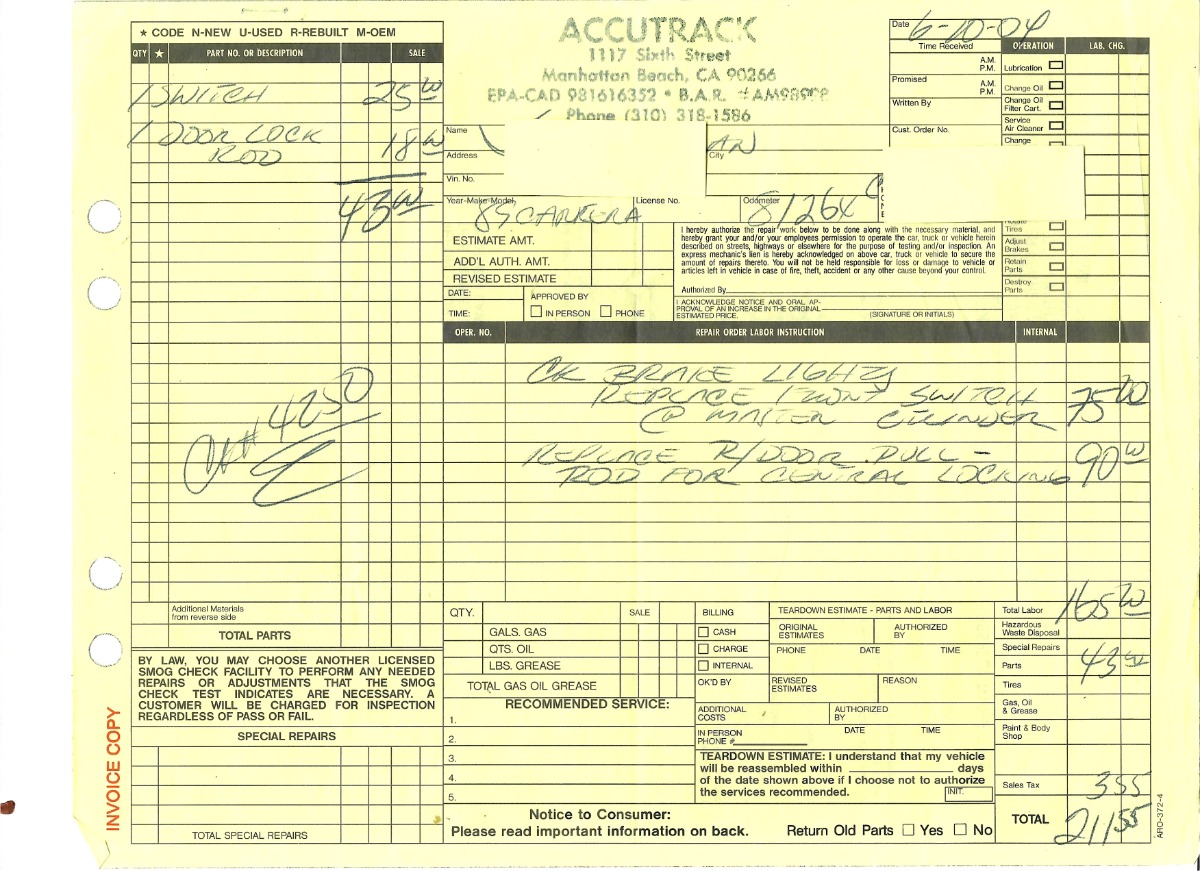 ★ CODE N-NEW U-USED R-REBUILT M-OEM
QTY ★ PART NO. OR DESCRIPTION SALE
1 SWITCH 25 00
1 DOOR LOCK
ROD 18 00
43 00
CK# 4250
Additional Materials
from reverse side
TOTAL PARTS
BY LAW, YOU MAY CHOOSE ANOTHER LICENSED
SMOG CHECK FACILITY TO PERFORM ANY NEEDED
REPAIRS OR ADJUSTMENTS THAT THE SMOG
CHECK TEST INDICATES ARE NECESSARY. A
CUSTOMER WILL BE CHARGED FOR INSPECTION
REGARDLESS OF PASS OR FAIL.
SPECIAL REPAIRS
TOTAL SPECIAL REPAIRS
INVOICE COPY
ACCUTRACK
1117 Sixth Street
Manhattan Beach, CA 90266
EPA-CAD 981616352 • B.A.R. #AM98908
Phone (310) 318-1586
Name
Address
City
Vin. No.
Year-Make-Model License No. Odometer
85 CARRERA 81264
ESTIMATE AMT.
ADD'L AUTH. AMT.
REVISED ESTIMATE
DATE: APPROVED BY
TIME: IN PERSON PHONE
I hereby authorize the repair work below to be done along with the necessary material, and
hereby grant your and/or your employees permission to operate the car, truck or vehicle herein
described on streets, highways or elsewhere for the purpose of testing and/or inspection. An
express mechanic's lien is hereby acknowledged on above car, truck or vehicle to secure the
amount of repairs thereto. You will not be held responsible for loss or damage to vehicle or
articles left in vehicle in case of fire, theft, accident or any other cause beyond your control.
Authorized By
I ACKNOWLEDGE NOTICE AND ORAL AP-
PROVAL OF AN INCREASE IN THE ORIGINAL
ESTIMATED PRICE. (SIGNATURE OR INITIALS)
Date 6-10-04
Time Received A.M.
P.M.
Promised A.M.
P.M.
Written By
Cust. Order No.
OPERATION LAB. CHG.
Lubrication
Change Oil
Change Oil
Filter Cart.
Service
Air Cleaner
Change
Rotate
Tires
Adjust
Brakes
Retain
Parts
Destroy
Parts
OPER. NO. REPAIR ORDER LABOR INSTRUCTION INTERNAL
CK BRAKE LIGHTS
REPLACE FRONT SWITCH
@ MASTER CYLINDER 75 00
REPLACE R/DOOR PULL-
ROD FOR CENTRAL LOCKING 90 00
QTY. SALE
GALS. GAS
QTS. OIL
LBS. GREASE
TOTAL GAS OIL GREASE
RECOMMENDED SERVICE:
1.
2.
3.
4.
5.
BILLING
CASH
CHARGE
INTERNAL
OK'D BY
ADDITIONAL
COSTS
IN PERSON
PHONE #
TEARDOWN ESTIMATE - PARTS AND LABOR
ORIGINAL
ESTIMATES AUTHORIZED
BY
PHONE DATE TIME
REVISED
ESTIMATES REASON
AUTHORIZED
BY
DATE TIME
TEARDOWN ESTIMATE: I understand that my vehicle
will be reassembled within days
of the date shown above if I choose not to authorize
the services recommended. INIT.
Notice to Consumer:
Please read important information on back.
Return Old Parts Yes No
Total Labor 165 00
Hazardous
Waste Disposal
Special Repairs
Parts 43 00
Tires
Gas, Oil
& Grease
Paint & Body
Shop
Sales Tax 3 55
TOTAL 211 55
ARO-372-4